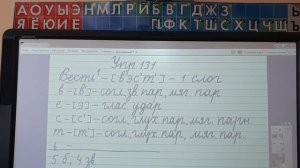 А О У Ы Э Н М Л Р Й Б В Г Д Ж З
Я Ё Ю И Е П Ф К Т Ш С Х Ц Ч Щ
Упр 131
Весть - [в'эс'т'] - 1 слог
в - [в'] - согл, зв пар, мяг пар
е - [э] - глас удар
с - [с'] - согл, глух пар, мяг парн
т - [т'] - согл, глух пар, мяг пар.
ь -
5 б, 4 зв